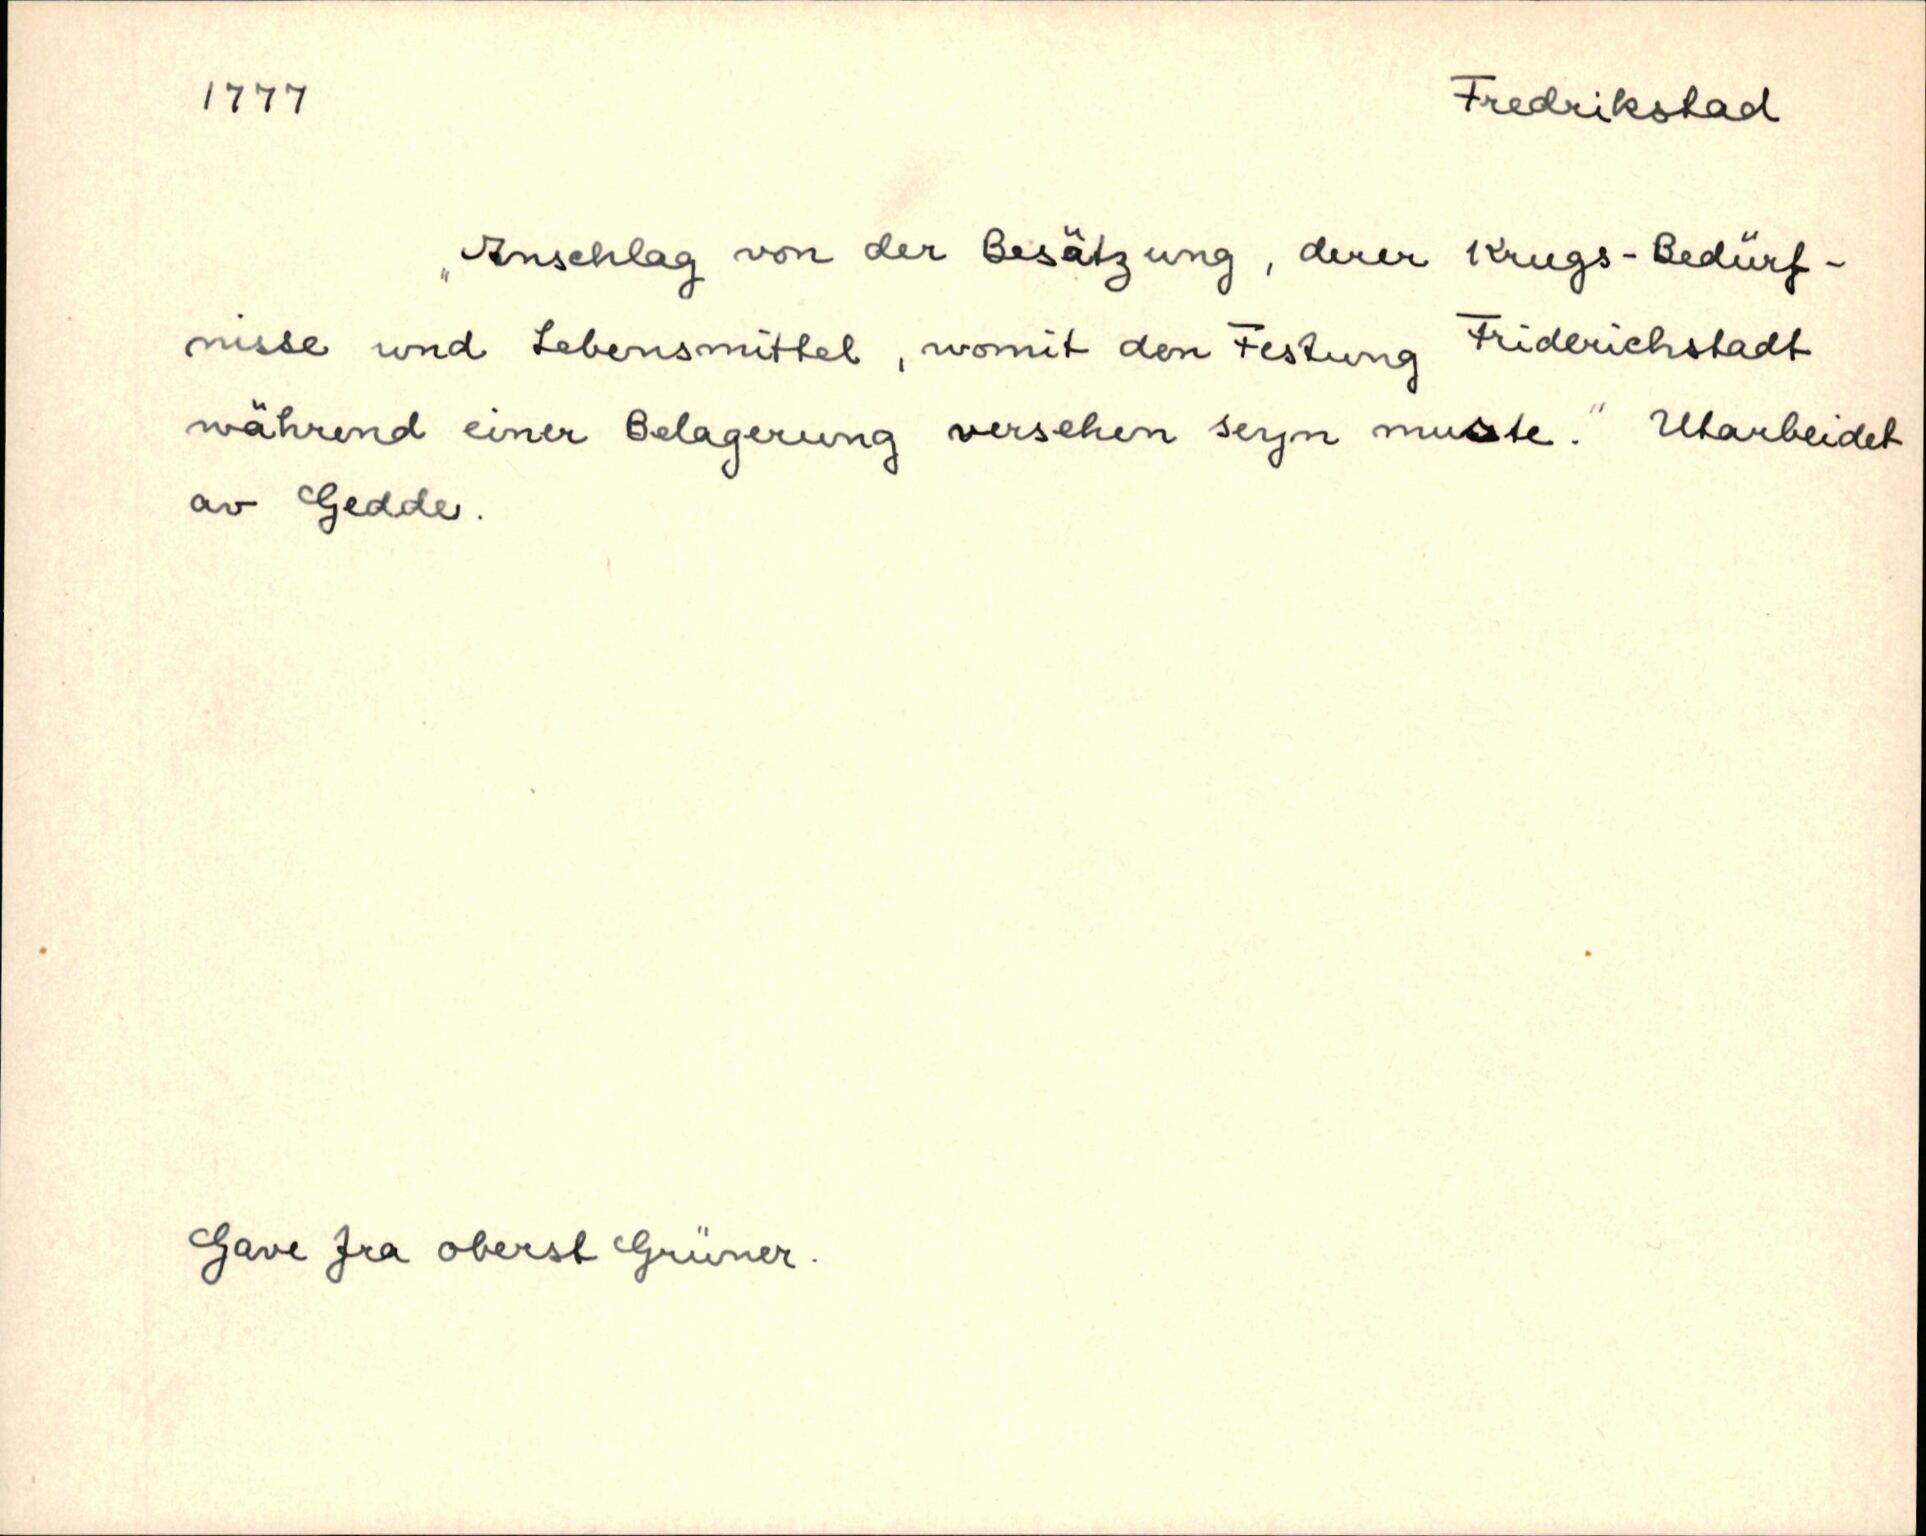 1777 Fredrikstad
„Anschlag von der Besätzung, derer Krugs-Bedürf-
nisse und Lebensmittel, womit den Festung Friderichstadt
während einer Belagerung versehen seyn muste." Utarbeidet
av Gedde.
Gave fra oberst Grüner.